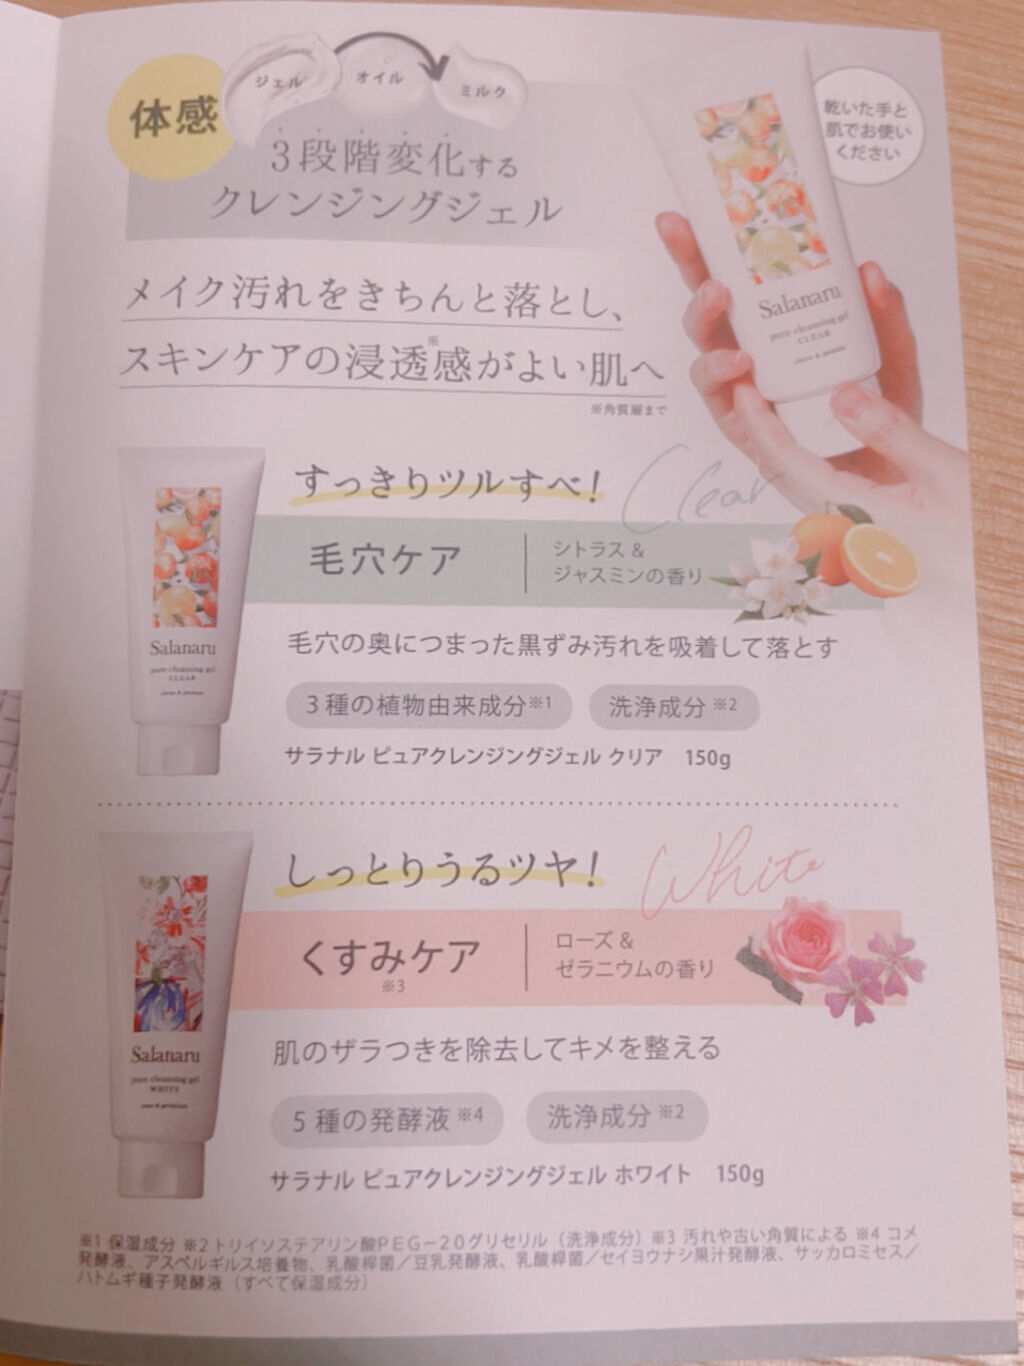 体感
ジェル
オイル
ミルク
3段階変化する
クレンジングジェル
乾いた手と
肌でお使い
ください
メイク汚れをきちんと落とし、
スキンケアの浸透※感がよい肌へ
※角質層まで
Salanaru
pure cleansing gel
CLEAR
citrus & jasmine
すっきりツルすべ!
Clear
毛穴ケア
シトラス &
ジャスミンの香り
毛穴の奥につまった黒ずみ汚れを吸着して落とす
3種の植物由来成分※1
洗浄成分※2
サラナル ピュアクレンジングジェル クリア 150g
Salanaru
pure cleansing gel
CLEAR
citrus & jasmine
しっとりうるツヤ!
White
くすみケア
※3
ローズ &
ゼラニウムの香り
肌のザラつきを除去してキメを整える
5種の発酵液※4
洗浄成分※2
サラナル ピュアクレンジングジェル ホワイト 150g
Salanaru
pure cleansing gel
WHITE
rose & geranium
※1 保湿成分 ※2 トリイソステアリン酸PEG-20グリセリル（洗浄成分）※3 汚れや古い角質による ※4 コメ
発酵液、アスペルギルス培養物、乳酸桿菌／豆乳発酵液、乳酸桿菌／セイヨウナシ果汁発酵液、サッカロミセス／
ハトムギ種子発酵液（すべて保湿成分）